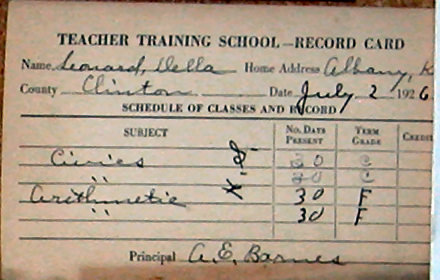 TEACHER TRAINING SCHOOL—RECORD CARD
Name Leonard, Della Home Address Albany, K
County Clinton Date July 2 1926
SCHEDULE OF CLASSES AND RECORD
SUBJECT No. DAYS PRESENT TERM GRADE CREDIT
Civics 20 C
" 20 C
Arithmetic 30 F
" 30 F
Principal A. E. Barnes